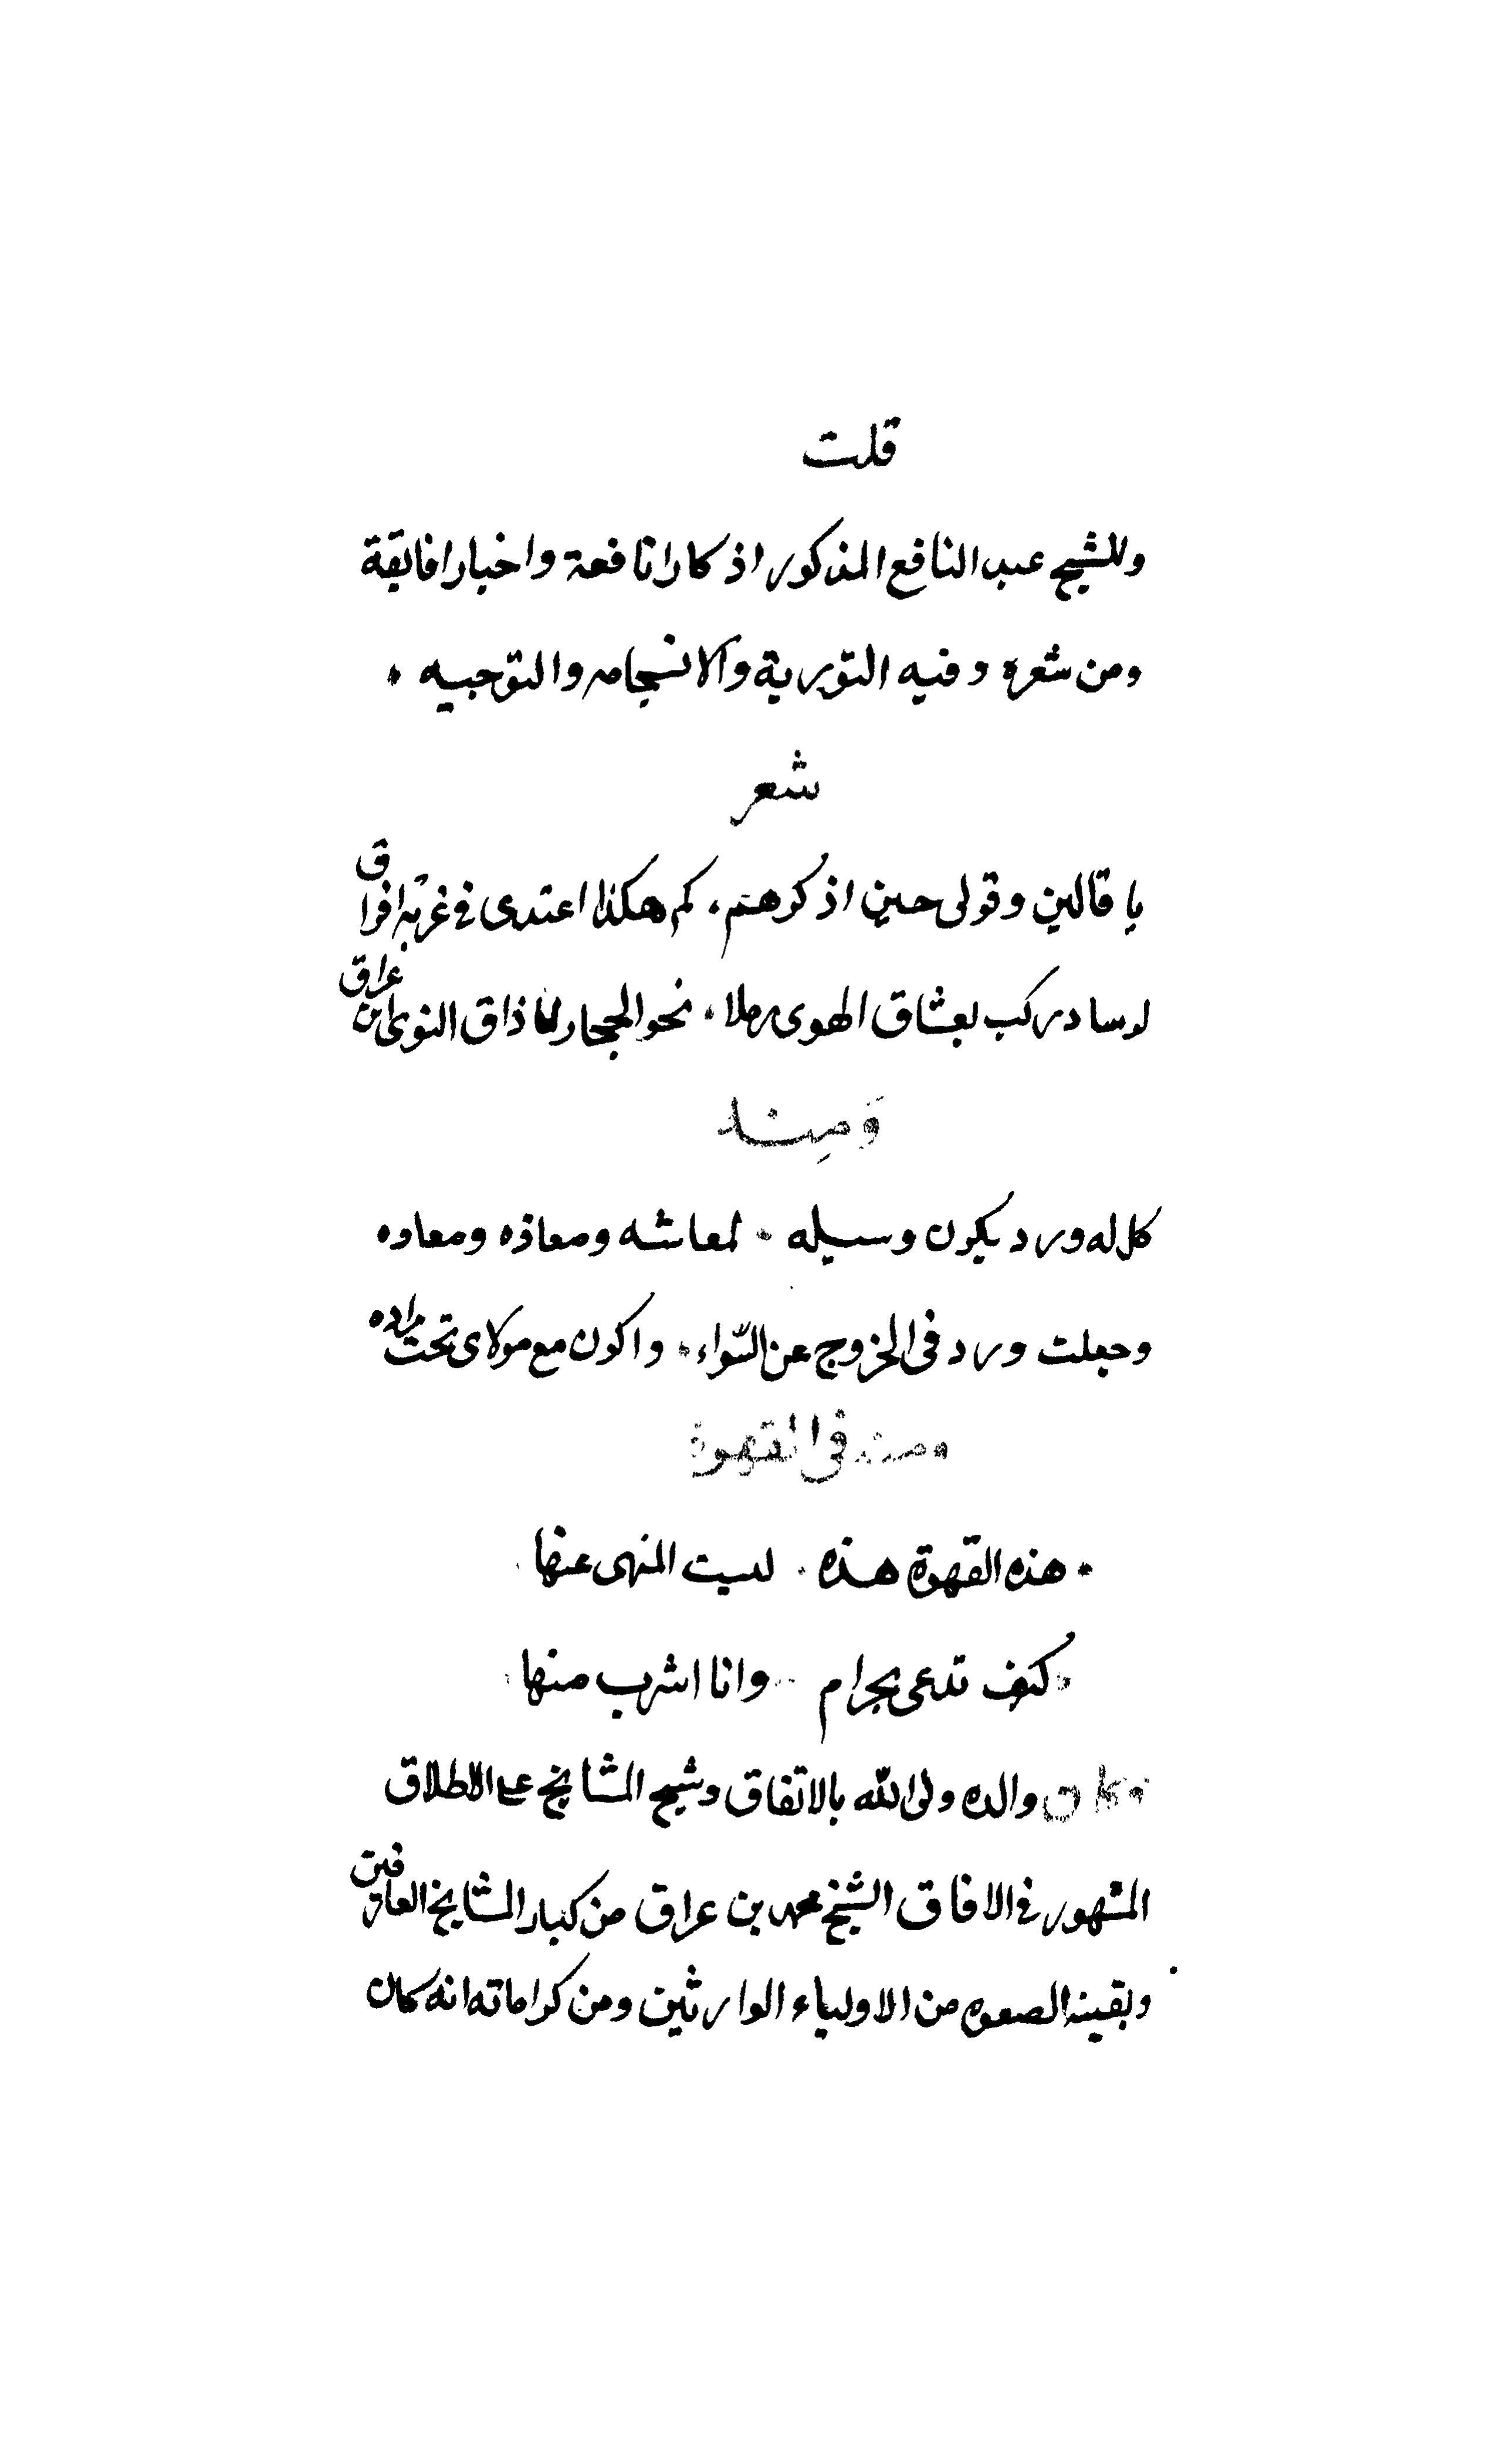 قلت
وللشيخ عبد النافع المذكور اذكارا نافعة واخبارا فايقة
ومن شعره وفيه التورية والانسجام والتوجيه .
شعر
يا قالين وقولى حين اذكرهم . كم هكذا اعتدى فى غربة افراق
لو سادر ركب بعشاق الهوى رملا . نحو الحجاز لما ذاق النوى ابن عراق
ومنه
كل له ورد يكون وسيله . لمعاشه ومعاذه ومعاده
وجعلت ورد فى الخروج عن السواء . واكون مع مولاى تحت مراده
ومنه فى القهوة
. هذه القهوة هذه . ليست المنهى عنها
. كيف تدعى بحرام . وانا اشرب منها
وكان والده ولى الله بالاتفاق وشيخ المشايخ على الاطلاق
المشهور فى الافاق الشيخ محمد بن عراق من كبار المشايخ العارفين
وبقية الصفوه من الاولياء الوارثين ومن كراماته انه كان